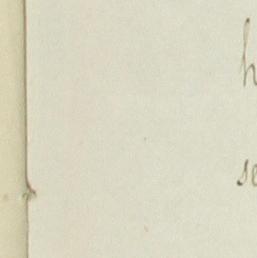 h
se